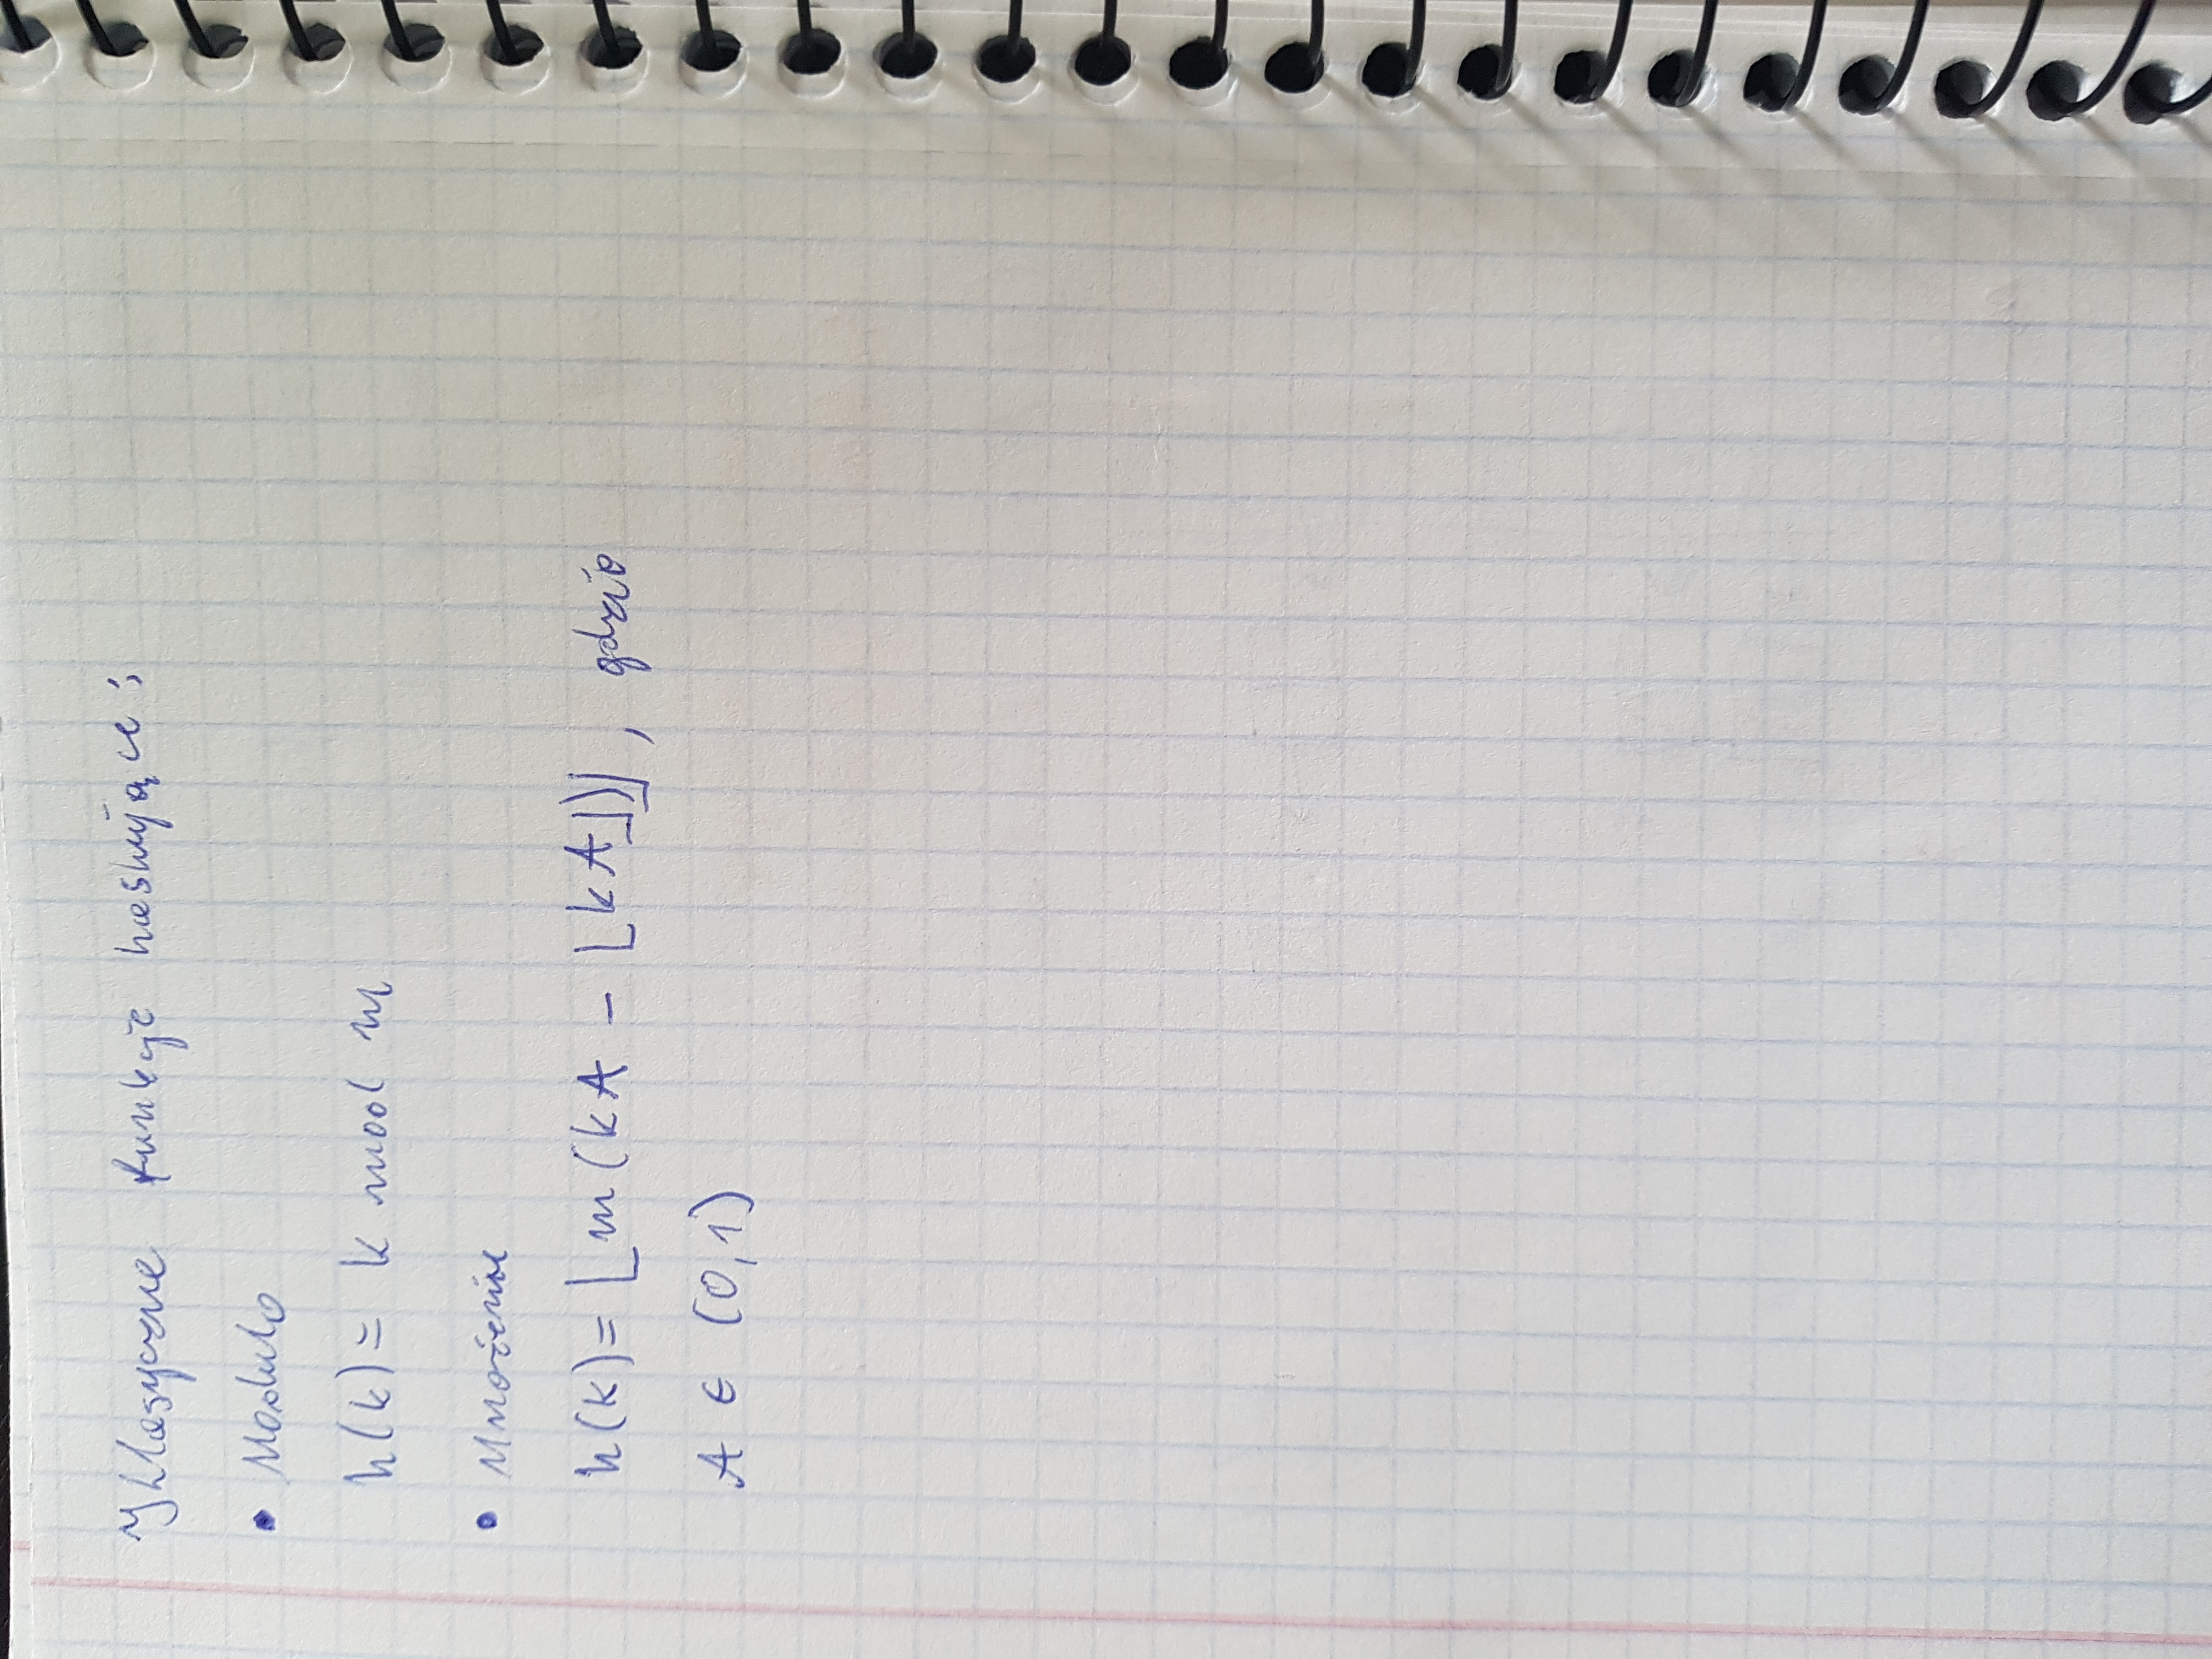 Klasyczne funkcje haszujące:
• Modulo
h(k) = k mod m
• Mnożenie
h(k) = ⌊m(kA - ⌊kA⌋)⌋, gdzie
A ∈ (0,1)